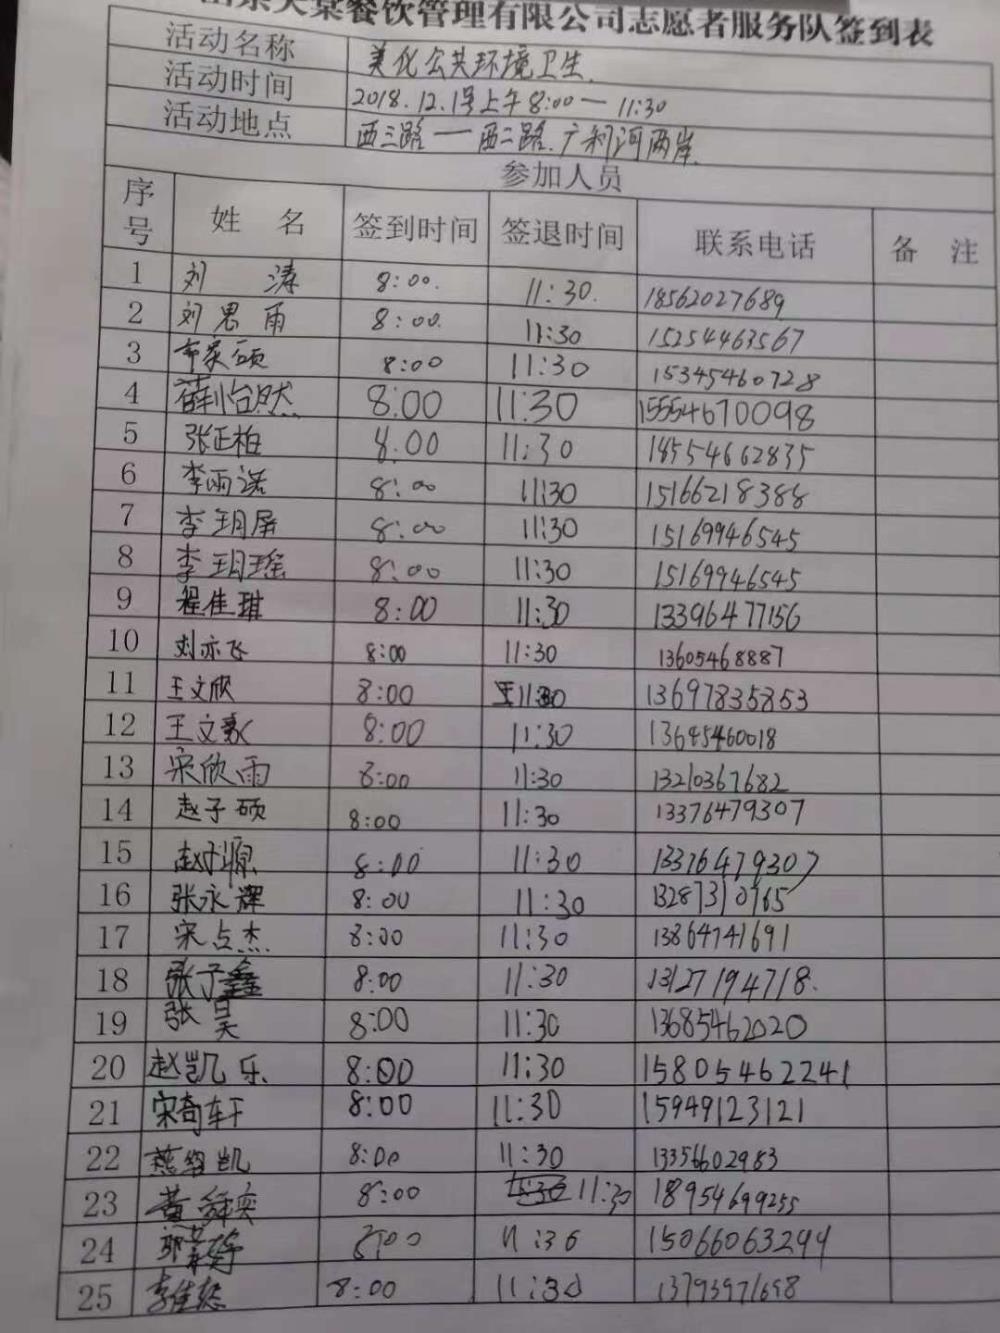 天棠餐饮管理有限公司志愿者服务队签到表
活动名称 美化公共环境卫生.
活动时间 2018.12.1号上午8:00—11:30
活动地点 西三路—西二路.广利河两岸.
参加人员
序号 姓 名 签到时间 签退时间 联系电话 备 注
1 刘 涛 8:00. 11:30. 18562027689
2 刘思雨 8:00. 11:30 15254463567
3 8:00 11:30 15345460728
4 薛怡然 8:00 11:30 15554670098
5 张正柏 8.00 11:30 18554662835
6 李雨诺 8:00 11:30 15166218388
7 李玥屏 8:00 11:30 15169946545
8 李玥瑶 8:00 11:30 15169946545
9 程佳琪 8:00 11:30 13396477156
10 刘亦飞 8:00 11:30 13605468887
11 王文欣 8:00 11:30 13697835853
12 王文豪 8:00 11:30 13645460018
13 宋欣雨 8:00 11:30 13210367682
14 赵子硕 8:00 11:30 13376479307
15 8:00 11:30 13376479307
16 张永耀 8:00 11:30 13287310765
17 宋占杰 8:00 11:30 13864741691
18 张子鑫 8:00 11:30 13127194718.
19 张昊 8:00 11:30 13685462020
20 赵凯乐 8:00 11:30 15805462241
21 宋奇轩 8:00 11:30 15949123121
22 燕绍凯 8:00 11:30 13356602983
23 黄舜奕 8:00 11:30 18954699255
24 8:00 11:30 15066063294
25 李佳 8:00 11:30 13793971698